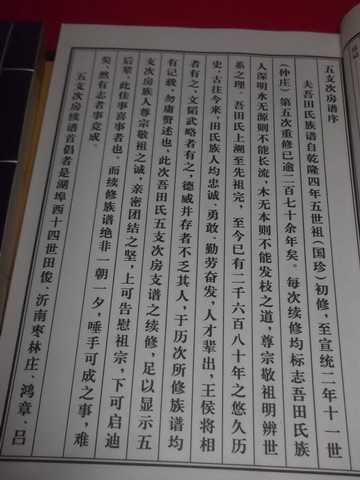 五支次房谱序
夫吾田氏族谱自乾隆四年五世祖（国珍）初修，至宣统二年十一世
（仲庄）第五次重修已逾二百七十余年矣。每次续修均标志吾田氏族
人深明水无源则不能长流，木无本则不能发枝之道，尊宗敬祖明辨世
系之理。吾田氏上溯至先祖完，至今已有二千六百八十年之悠久历
史，古往今来，田氏族人均忠诚、勇敢、勤劳奋发，人才辈出，王侯将相
者有之，文韬武略者有之，德威并存者不乏其人，于历次所修族谱均
有记载，勿庸赘述也，此次吾田氏五支次房支谱之续修，足以显示五
支次房族人尊宗敬祖之诚，亲密团结之坚，上可告慰祖宗，下可启迪
后辈，此佳事喜事者也。而续修族谱绝非一朝一夕，唾手可成之事，难
矣，然有志者事竟成。
五支次房续谱首倡者是湖埠西十四世田俊、沂南枣林庄、鸿章、吕